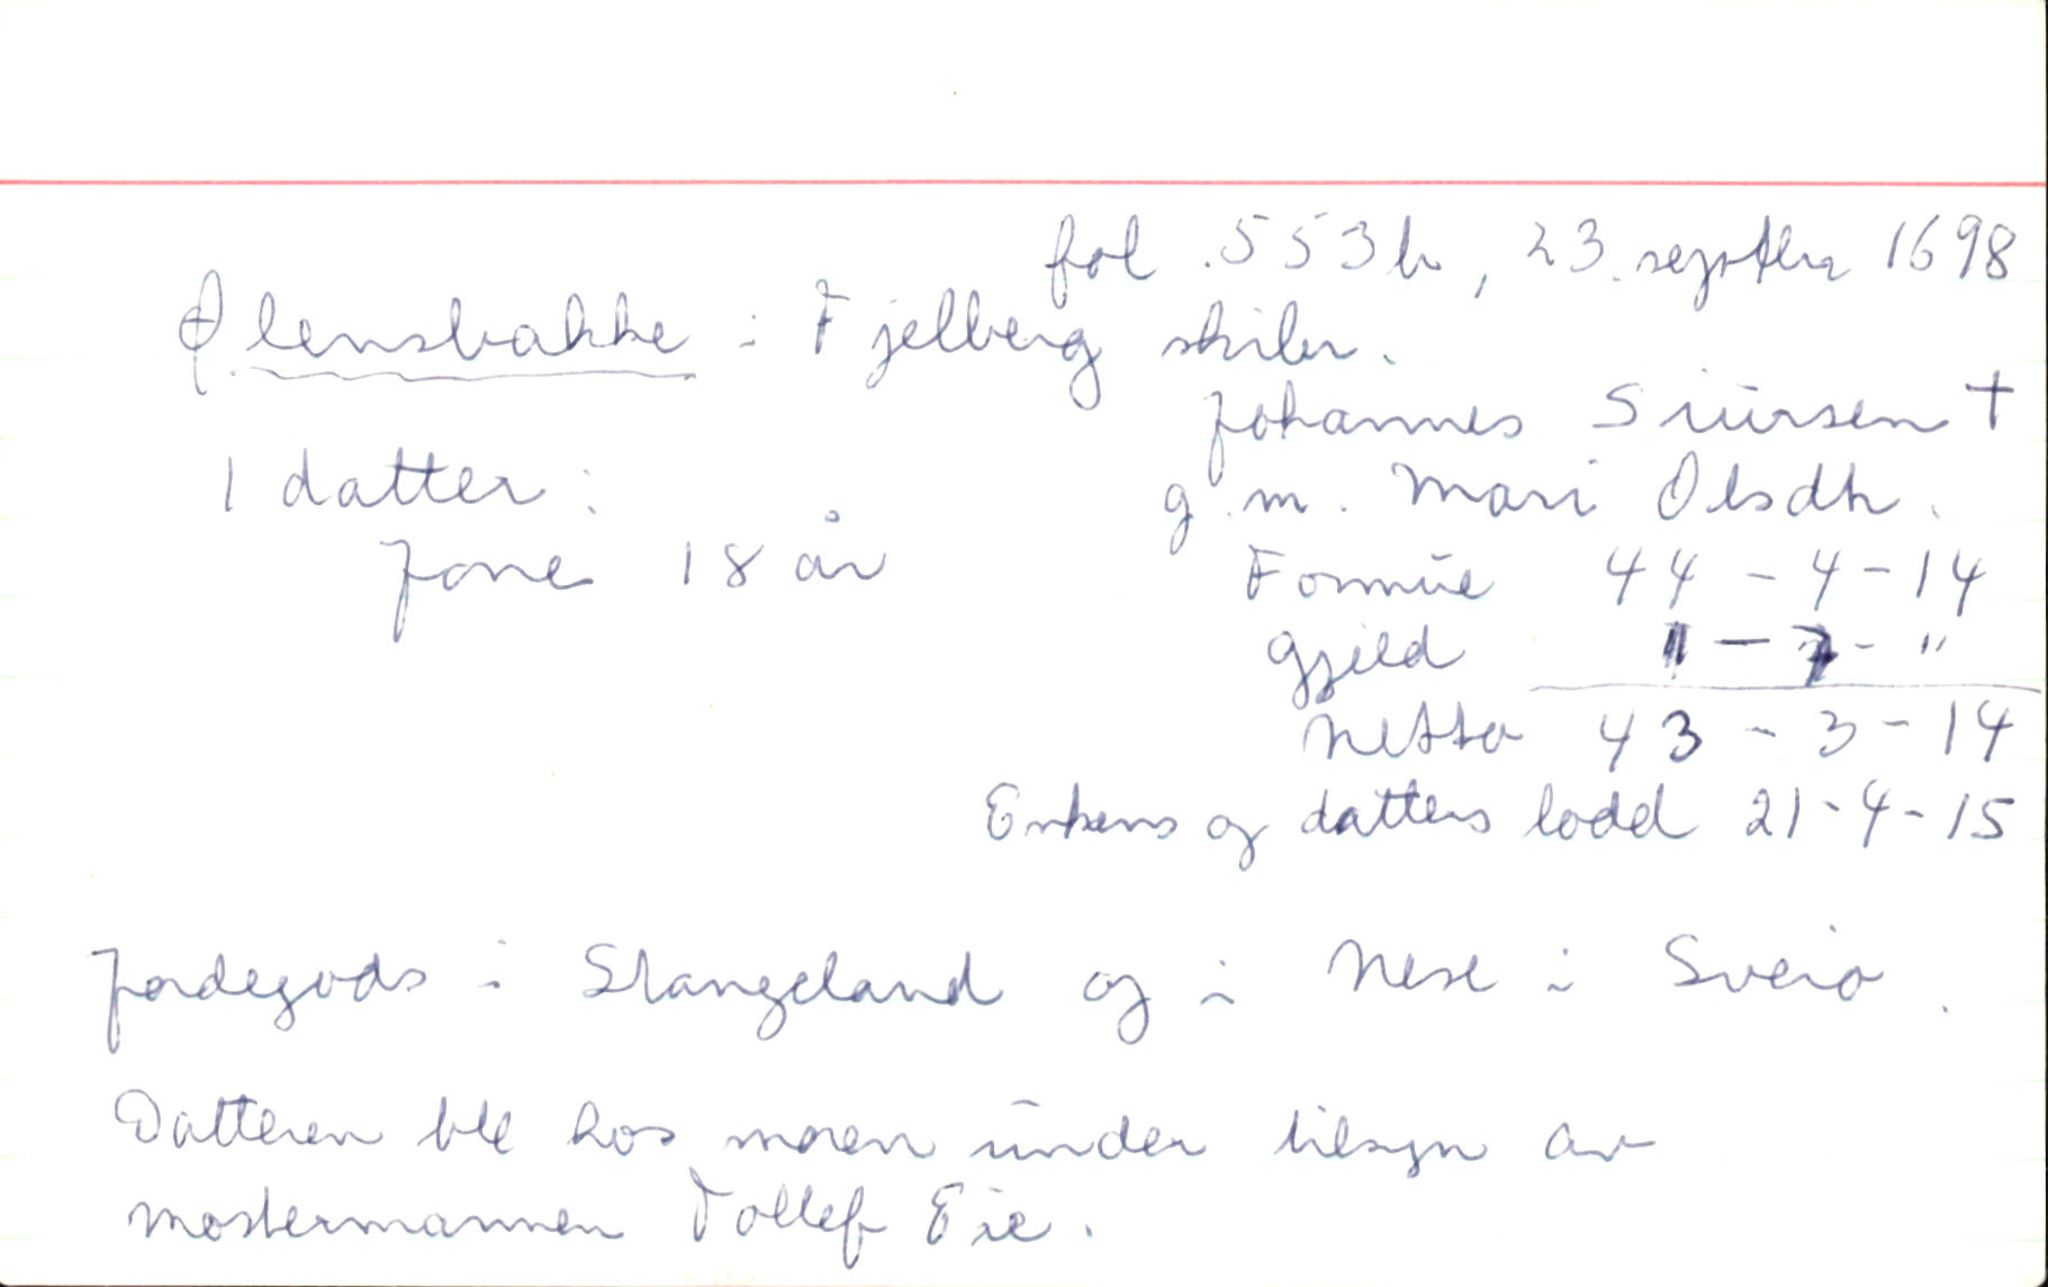 fol. 553b, 23. septbr 1698
Ølensbakke i Fjelberg skibr.
Johannes Siursen †
1 datter: g.m. Mari Olsdtr.
Jone 18 år Formue 44 - 4 - 14
Gjeld 1 - 1 - "
Netto 43 - 3 - 14
Enkens og datters lodd 21 - 4 - 15
Jordegods i Stangeland og i Nese i Sveio.
Datteren ble hos moren under tilsyn av
mostermannen Tollef Eie.